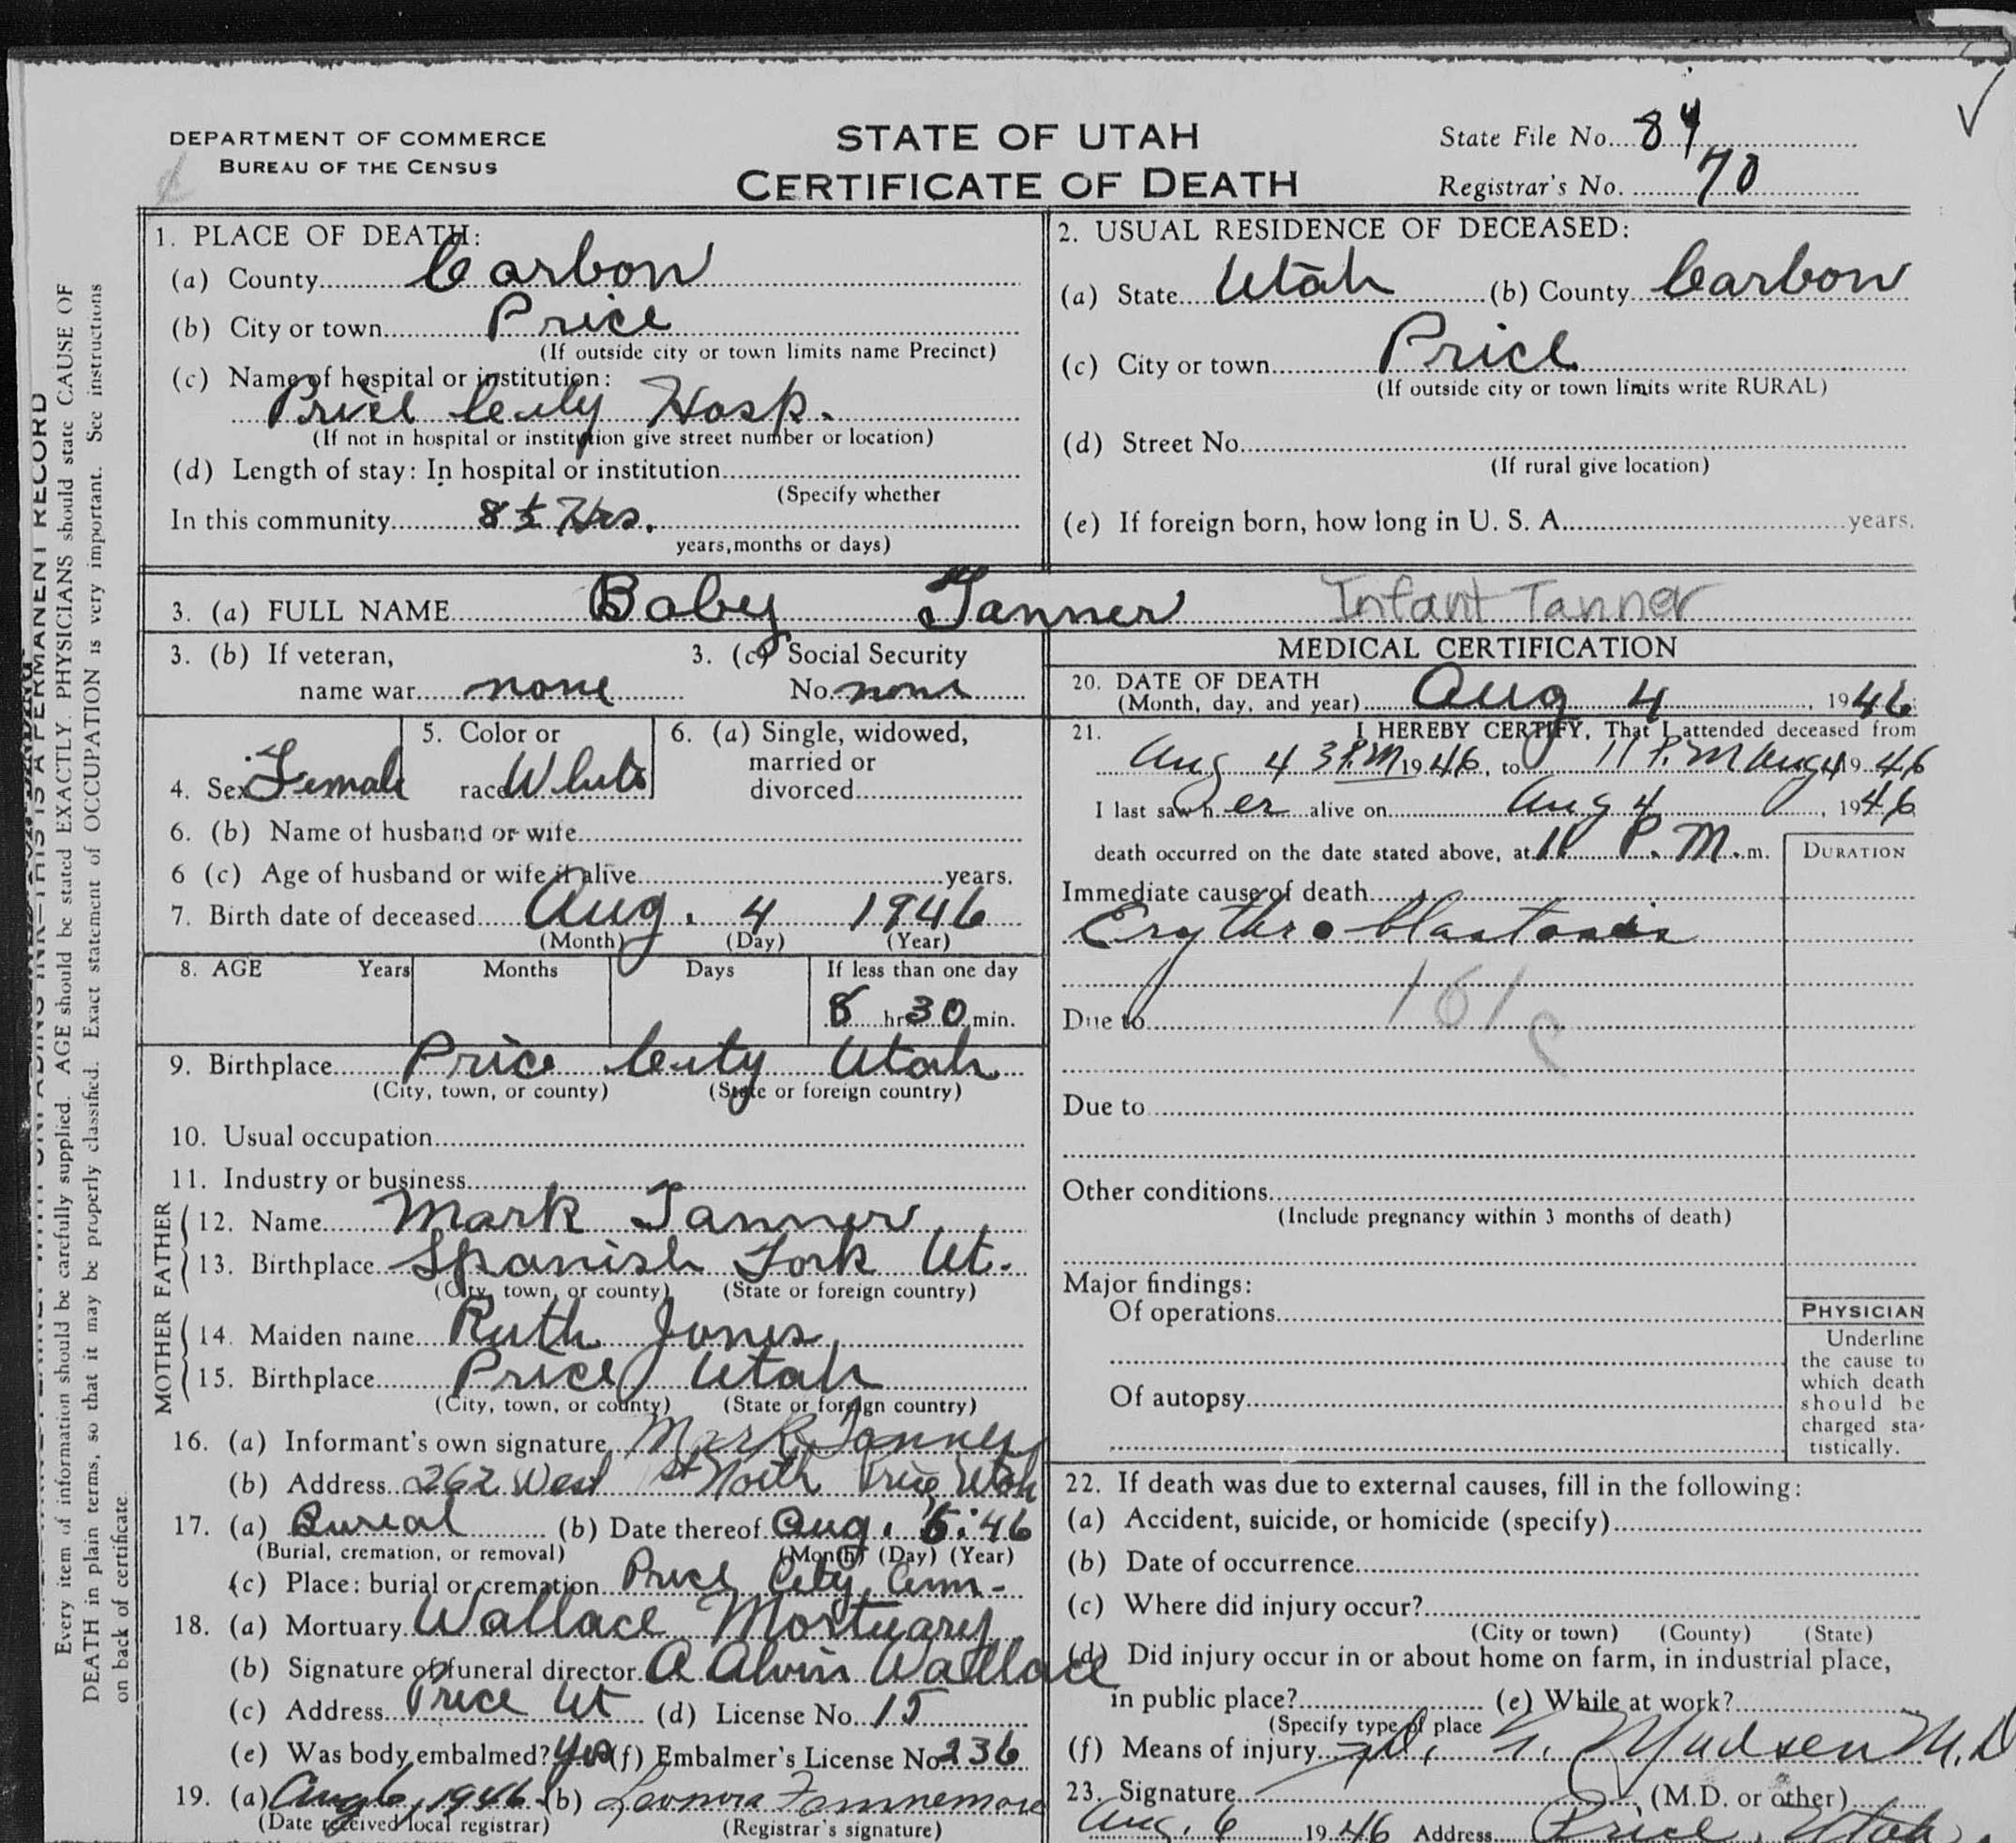 DEPARTMENT OF COMMERCE
BUREAU OF THE CENSUS
STATE OF UTAH
CERTIFICATE OF DEATH
State File No. 84
Registrar's No. 70
1. PLACE OF DEATH:
(a) County Carbon
(b) City or town Price
(If outside city or town limits name Precinct)
(c) Name of hospital or institution:
Price City Hosp.
(If not in hospital or institution give street number or location)
(d) Length of stay: In hospital or institution
(Specify whether
In this community 8½ Hrs.
years, months or days)
2. USUAL RESIDENCE OF DECEASED:
(a) State Utah (b) County Carbon
(c) City or town Price
(If outside city or town limits write RURAL)
(d) Street No.
(If rural give location)
(e) If foreign born, how long in U. S. A. years.
3. (a) FULL NAME Baby Tanner Infant Tanner
3. (b) If veteran,
name war none
3. (c) Social Security
No. none
4. Sex Female
5. Color or
race White
6. (a) Single, widowed,
married or
divorced
6. (b) Name of husband or wife
6 (c) Age of husband or wife if alive years.
7. Birth date of deceased Aug. 4 1946
(Month) (Day) (Year)
8. AGE Years Months Days If less than one day
8 hr. 30 min.
9. Birthplace Price City Utah
(City, town, or county) (State or foreign country)
10. Usual occupation
11. Industry or business
FATHER
12. Name Mark Tanner
13. Birthplace Spanish Fork Ut.
(City, town, or county) (State or foreign country)
MOTHER
14. Maiden name Ruth Jones
15. Birthplace Price Utah
(City, town, or county) (State or foreign country)
16. (a) Informant's own signature Mark Tanner
(b) Address 262 West St North Price Utah
17. (a) Burial (b) Date thereof Aug. 5. 46
(Burial, cremation, or removal) (Month) (Day) (Year)
(c) Place: burial or cremation Price City Cem-
18. (a) Mortuary Wallace Mortuary
(b) Signature of funeral director A Alvin Wallace
(c) Address Price Ut (d) License No. 15
(e) Was body embalmed? Yes (f) Embalmer's License No. 236
19. (a) Aug 6, 1946 (b) Leonora
(Date received local registrar) (Registrar's signature)
MEDICAL CERTIFICATION
20. DATE OF DEATH
(Month, day, and year) Aug 4, 1946
21. I HEREBY CERTIFY, That I attended deceased from
Aug 4 3 P.M 1946, to 11 P.M Aug 4 1946
I last saw her alive on Aug 4, 1946
death occurred on the date stated above, at 11 P.M. m.
DURATION
Immediate cause of death
Erythroblastosis
161c
Due to
Due to
Other conditions
(Include pregnancy within 3 months of death)
Major findings:
Of operations
Of autopsy
PHYSICIAN
Underline
the cause to
which death
should be
charged sta-
tistically.
22. If death was due to external causes, fill in the following:
(a) Accident, suicide, or homicide (specify)
(b) Date of occurrence
(c) Where did injury occur?
(City or town) (County) (State)
(d) Did injury occur in or about home on farm, in industrial place,
in public place? (e) While at work?
(Specify type of place
(f) Means of injury
Madsen M.D
23. Signature (M.D. or other)
Aug. 6 1946 Address Price, Utah
THIS IS A PERMANENT RECORD
Every item of information should be carefully supplied. AGE should be stated EXACTLY. PHYSICIANS should state CAUSE OF
DEATH in plain terms, so that it may be properly classified. Exact statement of OCCUPATION is very important. See instructions
on back of certificate.